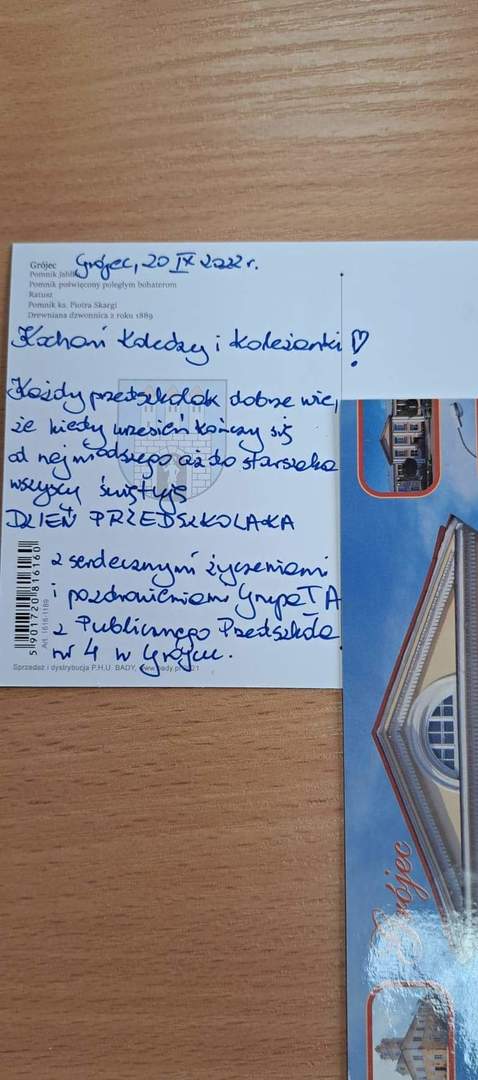 Grójec
Grójec, 20 IX 2022 r.
Pomnik Jabłka
Pomnik poświęcony poległym bohaterom
Ratusz
Pomnik ks. Piotra Skargi
Drewniana dzwonnica z roku 1889
Kochani Koledzy i Koleżanki!
Każdy przedszkolak dobrze wie,
że kiedy wrzesień kończy się
od najmłodszego aż do starszaka
wszyscy świętują
DZIEŃ PRZEDSZKOLAKA
z serdecznymi życzeniami
i pozdrowieniami Grupa I A
z Publicznego Przedszkola
nr 4 w Grójcu.
5 901720 816160
Art. 1616-1189
Sprzedaż i dystrybucja P.H.U. BADY, www.bady.pl
Grójec